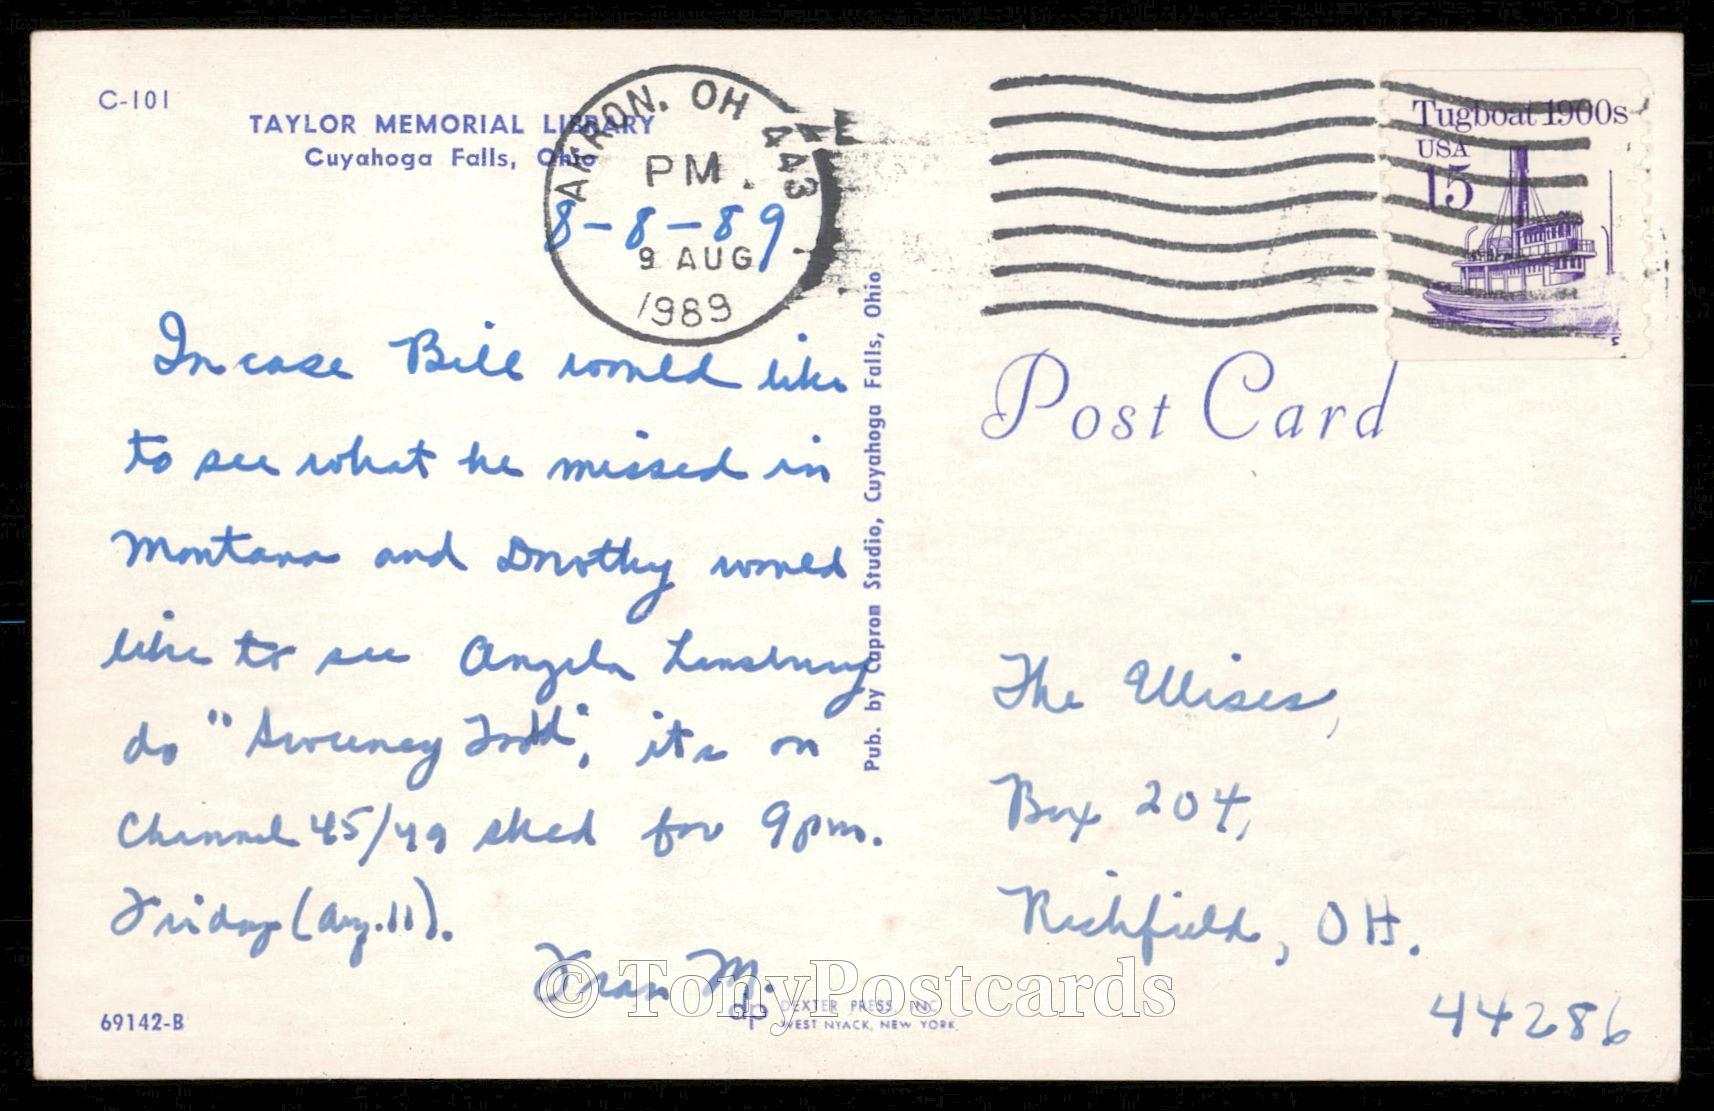 C-101
TAYLOR MEMORIAL LIBRARY
Cuyahoga Falls, Ohio
AKRON, OH 443
PM
8-8-89
9 AUG
1989
In case Bill would like
to see what he missed in
Montana and Dorothy would
like to see Angela Lansbury
do "Sweeney Todd", its on
Channel 45/49 sked for 9pm.
Friday (Aug. 11).
Fran M.
69142-B
dp
DEXTER PRESS, INC.
WEST NYACK, NEW YORK
Pub. by Capron Studio, Cuyahoga Falls, Ohio
Tugboat 1900s
USA
15
Post Card
The Ellises,
Box 204,
Richfield, OH.
44286
© TonyPostcards